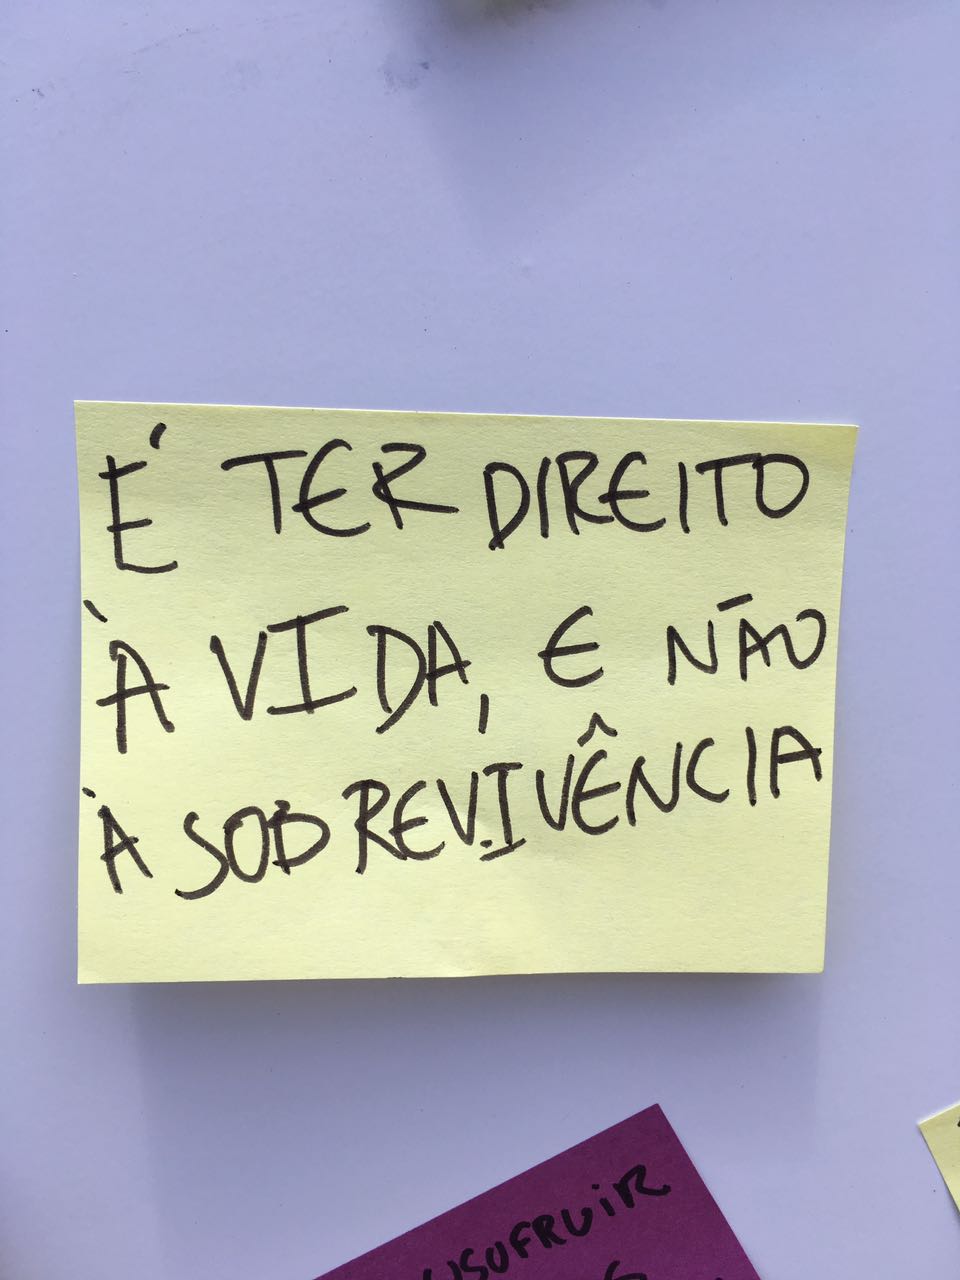 É TER DIREITO
À VIDA, E NÃO
À SOBREVIVÊNCIA
USUFRUIR